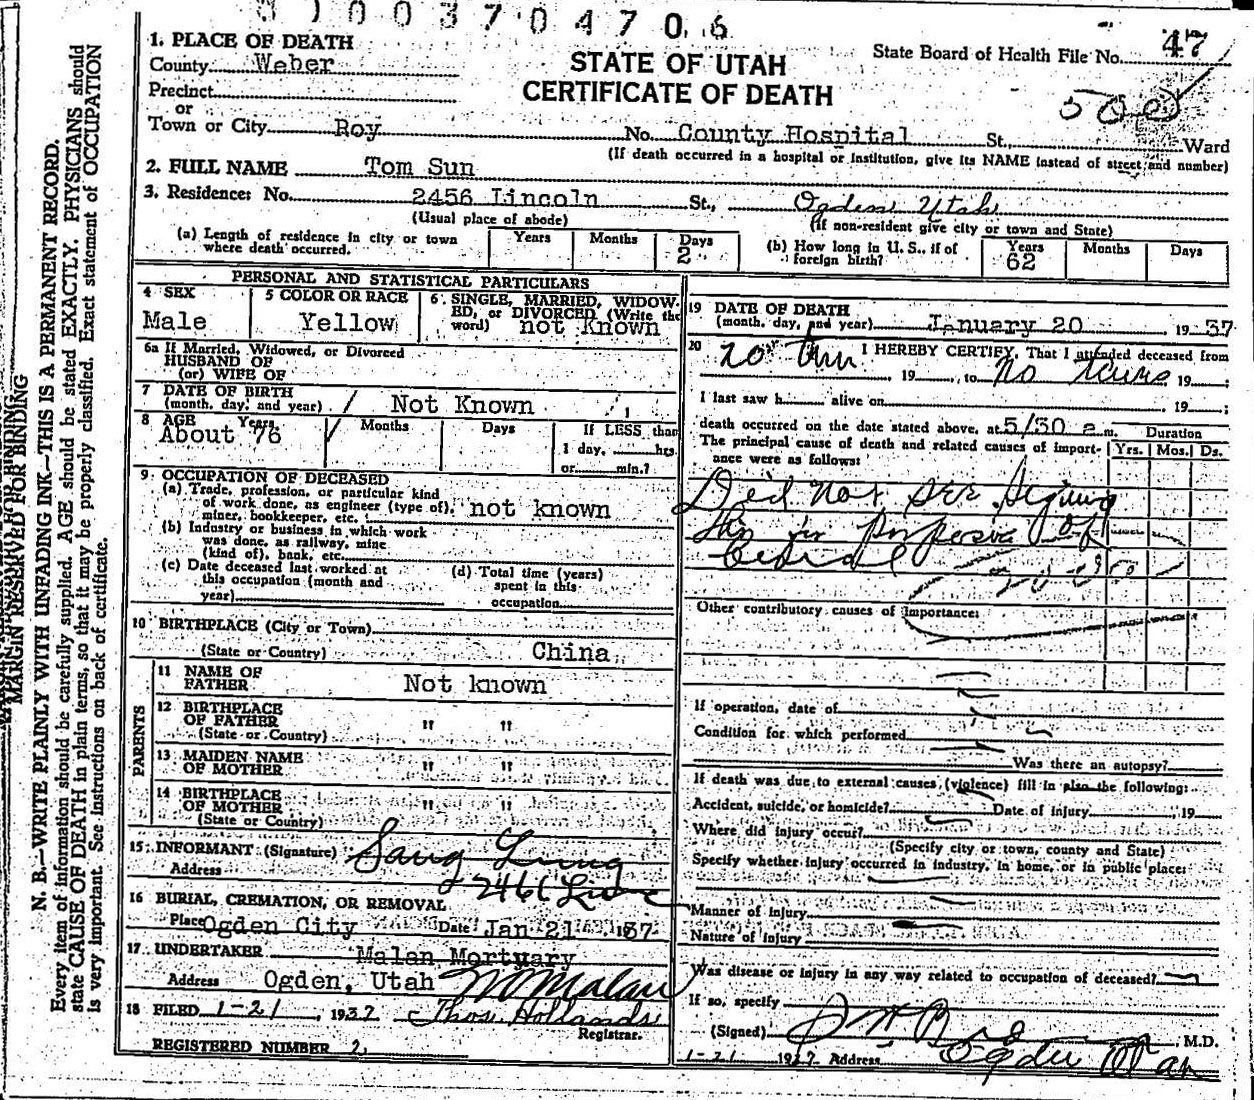 003704706
1. PLACE OF DEATH
County Weber
STATE OF UTAH
CERTIFICATE OF DEATH
State Board of Health File No. 47
Precinct
or
Town or City Roy No. County Hospital St., Ward
(If death occurred in a hospital or institution, give its NAME instead of street and number)
2. FULL NAME Tom Sun
3. Residence: No. 2456 Lincoln St., Ogden Utah
(Usual place of abode) (If non-resident give city or town and State)
(a) Length of residence in city or town where death occurred. Years Months Days 2
(b) How long in U. S., if of foreign birth? Years 62 Months Days
PERSONAL AND STATISTICAL PARTICULARS
4 SEX Male
5 COLOR OR RACE Yellow
6. SINGLE, MARRIED, WIDOWED, or DIVORCED (Write the word) not known
6a If Married, Widowed, or Divorced
HUSBAND OF
(or) WIFE OF
7 DATE OF BIRTH
(month, day, and year) Not Known
8 AGE Years About 76 Months Days If LESS than
1 day, hrs.
or min.?
9. OCCUPATION OF DECEASED
(a) Trade, profession, or particular kind
of work done, as engineer (type of), not known
miner, bookkeeper, etc.
(b) Industry or business in which work
was done, as railway, mine
(kind of), bank, etc.
(c) Date deceased last worked at
this occupation (month and
year)
(d) Total time (years)
spent in this
occupation
10 BIRTHPLACE (City or Town)
(State or Country) China
PARENTS
11 NAME OF
FATHER Not known
12 BIRTHPLACE
OF FATHER " "
(State or Country)
13 MAIDEN NAME
OF MOTHER " "
14 BIRTHPLACE
OF MOTHER " "
(State or Country)
15. INFORMANT (Signature) Sang Lung
Address
16 BURIAL, CREMATION, OR REMOVAL
Place Ogden City Date Jan 21 1937
17. UNDERTAKER Malan Mortuary
Address Ogden, Utah Malan
18 FILED 1-21, 1937 Thos. Hollands
Registrar.
REGISTERED NUMBER 2
19 DATE OF DEATH
(month, day, and year) January 20, 1937
20 I HEREBY CERTIFY, That I attended deceased from
19, to No 19;
I last saw h alive on 19;
death occurred on the date stated above, at 5/30 a m. Duration
The principal cause of death and related causes of importance were as follows: Yrs. Mos. Ds.
Did not see
Other contributory causes of importance:
If operation, date of
Condition for which performed
Was there an autopsy?
If death was due to external causes (violence) fill in also the following:
Accident, suicide, or homicide? Date of injury, 19
Where did injury occur?
(Specify city or town, county and State)
Specify whether injury occurred in industry, in home, or in public place:
Manner of injury
Nature of injury
Was disease or injury in any way related to occupation of deceased?
If so, specify
(Signed), M.D.
1-21 1937 Address Ogden Utah
MARGIN RESERVED FOR BINDING
N. B.—WRITE PLAINLY WITH UNFADING INK—THIS IS A PERMANENT RECORD.
Every item of information should be carefully supplied. AGE should be stated EXACTLY. PHYSICIANS should
state CAUSE OF DEATH in plain terms, so that it may be properly classified. Exact statement of OCCUPATION
is very important. See instructions on back of certificate.